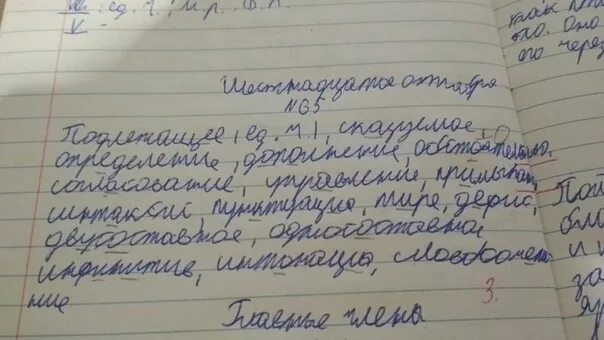 ед. ч., м. р.,
V -
Шестнадцатое октября
№65
Подлежащее, ед. ч., сказуемое,
определение, дополнение, обстоятельство,
согласование, управление, примыкан,
синтаксис, пунктуация, тире, дефис,
двусоставное, односоставное
инфинитив, интонация, словосочета-
ние
3.
Главные члены
как
его через
Пой
и
за